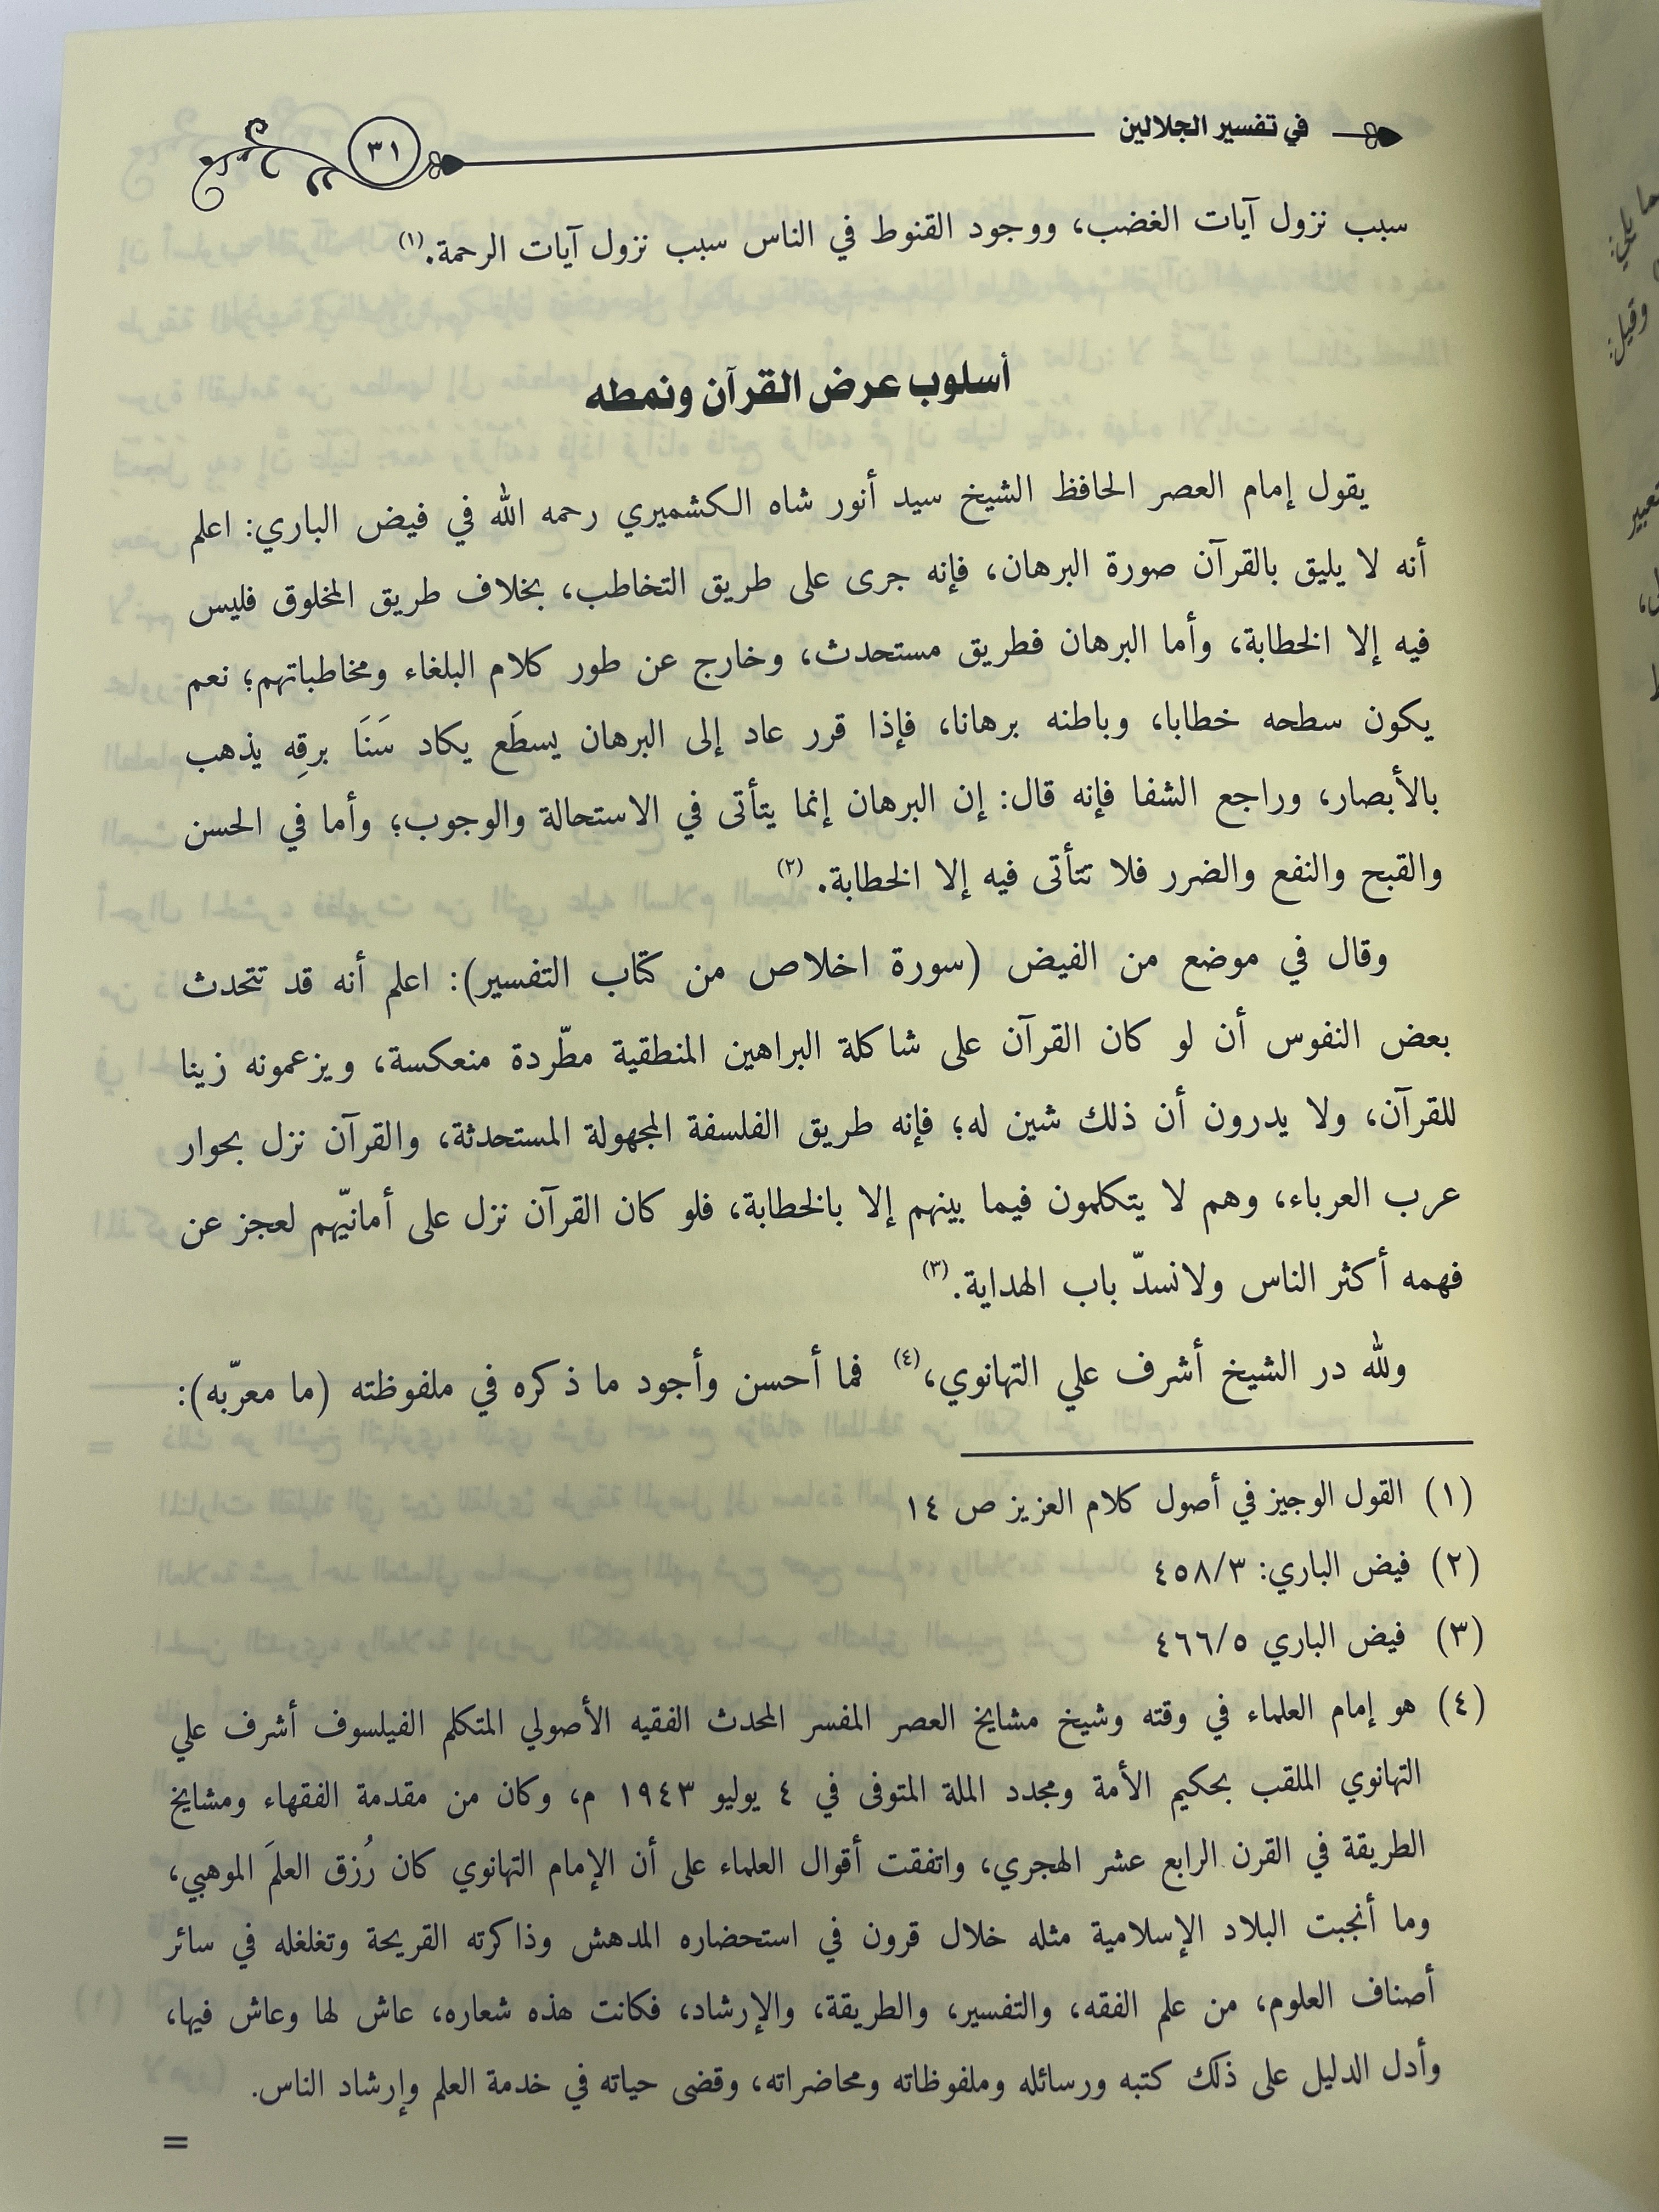 في تفسير الجلالين
٣١
سبب نزول آيات الغضب، ووجود القنوط في الناس سبب نزول آيات الرحمة.(١)
أسلوب عرض القرآن ونمطه
يقول إمام العصر الحافظ الشيخ سيد أنور شاه الكشميري رحمه الله في فيض الباري: اعلم
أنه لا يليق بالقرآن صورة البرهان، فإنه جرى على طريق التخاطب، بخلاف طريق المخلوق فليس
فيه إلا الخطابة، وأما البرهان فطريق مستحدث، وخارج عن طور كلام البلغاء ومخاطباتهم؛ نعم
يكون سطحه خطابا، وباطنه برهانا، فإذا قرر عاد إلى البرهان يسطَع يكاد سَنَا برقِه يذهب
بالأبصار، وراجع الشفا فإنه قال: إن البرهان إنما يتأتى في الاستحالة والوجوب؛ وأما في الحسن
والقبح والنفع والضرر فلا تتأتى فيه إلا الخطابة. (٢)
وقال في موضع من الفيض (سورة اخلاص من كتاب التفسير): اعلم أنه قد تتحدث
بعض النفوس أن لو كان القرآن على شاكلة البراهين المنطقية مطّردة منعكسة، ويزعمونه زينا
للقرآن، ولا يدرون أن ذلك شين له؛ فإنه طريق الفلسفة المجهولة المستحدثة، والقرآن نزل بحوار
عرب العرباء، وهم لا يتكلمون فيما بينهم إلا بالخطابة، فلو كان القرآن نزل على أمانيّهم لعجز عن
فهمه أكثر الناس ولانسدّ باب الهداية.(٣)
ولله در الشيخ أشرف علي التهانوي،(٤) فما أحسن وأجود ما ذكره في ملفوظته (ما معرّبه):
(١) القول الوجيز في أصول كلام العزيز ص ١٤
(٢) فيض الباري: ٤٥٨/٣
(٣) فيض الباري ٤٦٦/٥
(٤) هو إمام العلماء في وقته وشيخ مشايخ العصر المفسر المحدث الفقيه الأصولي المتكلم الفيلسوف أشرف علي
التهانوي الملقب بحكيم الأمة ومجدد الملة المتوفى في ٤ يوليو ١٩٤٣ م، وكان من مقدمة الفقهاء ومشايخ
الطريقة في القرن الرابع عشر الهجري، واتفقت أقوال العلماء على أن الإمام التهانوي كان رُزق العلمَ الموهبي،
وما أنجبت البلاد الإسلامية مثله خلال قرون في استحضاره المدهش وذاكرته القريحة وتغلغله في سائر
أصناف العلوم، من علم الفقه، والتفسير، والطريقة، والإرشاد، فكانت هذه شعاره، عاش لها وعاش فيها،
وأدل الدليل على ذلك كتبه ورسائله وملفوظاته ومحاضراته، وقضى حياته في خدمة العلم وإرشاد الناس.
=
وقيل: